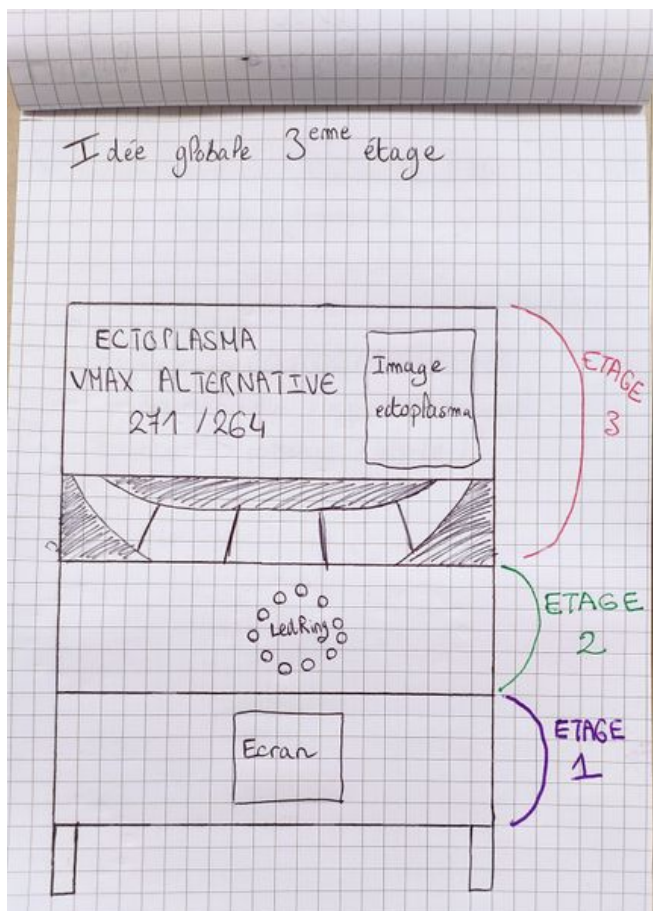 Idée globale 3eme étage
ECTOPLASMA
VMAX ALTERNATIVE
271 / 264
Image
ectoplasma
ETAGE
3
LedRing
ETAGE
2
Ecran
ETAGE
1